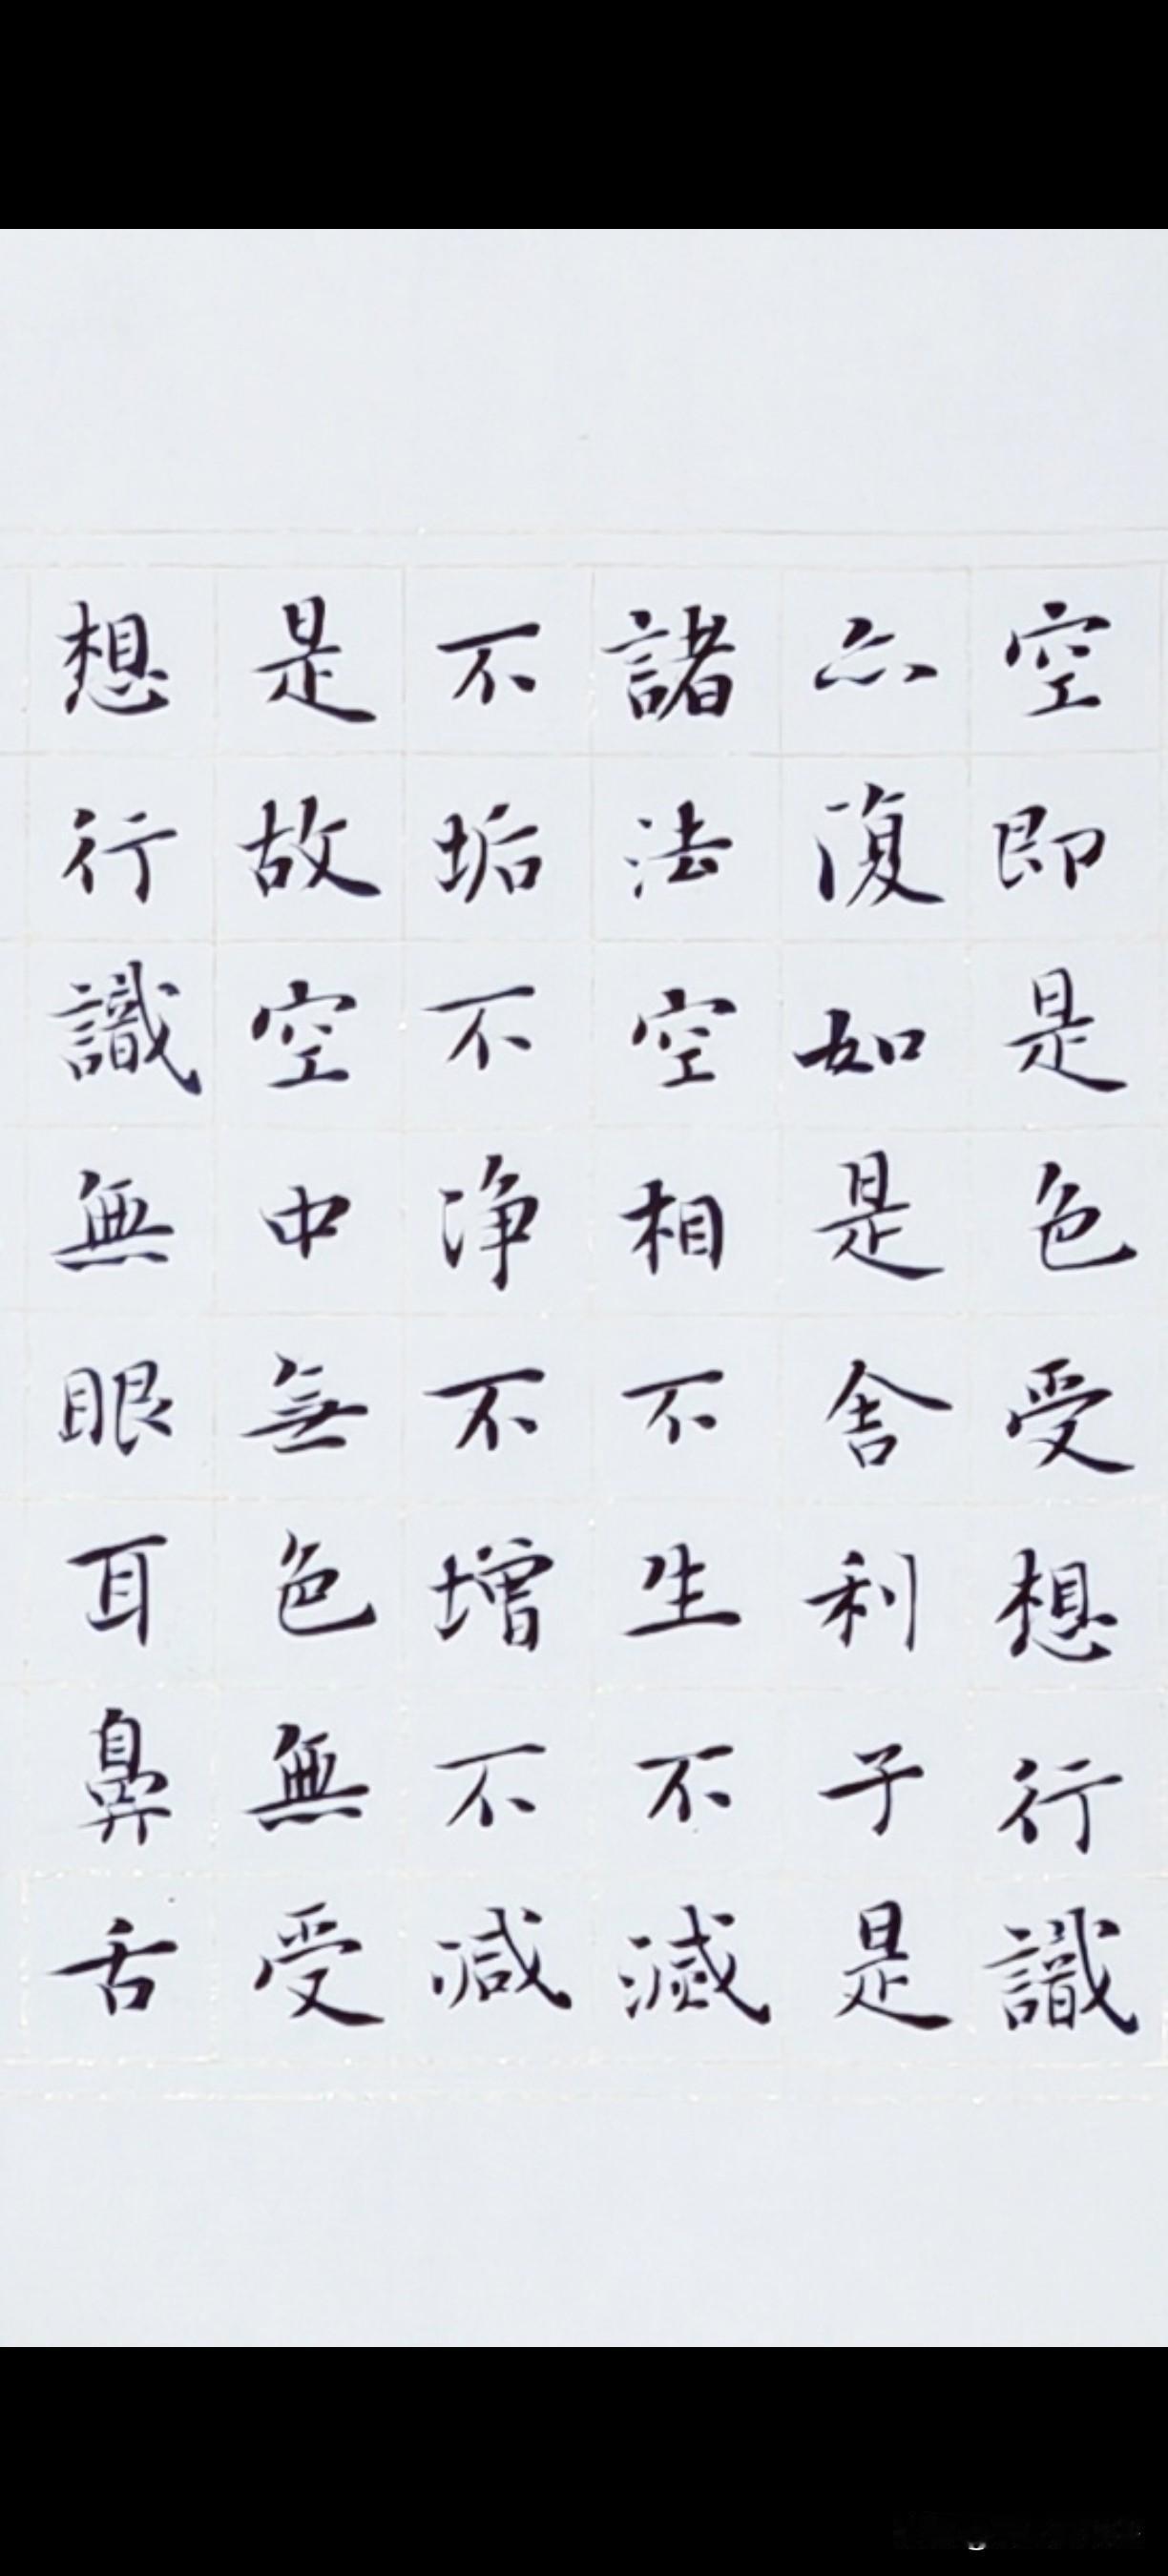 空即是色受想行識
亦復如是舍利子是
諸法空相不生不滅
不垢不净不增不減
是故空中無色無受
想行識無眼耳鼻舌